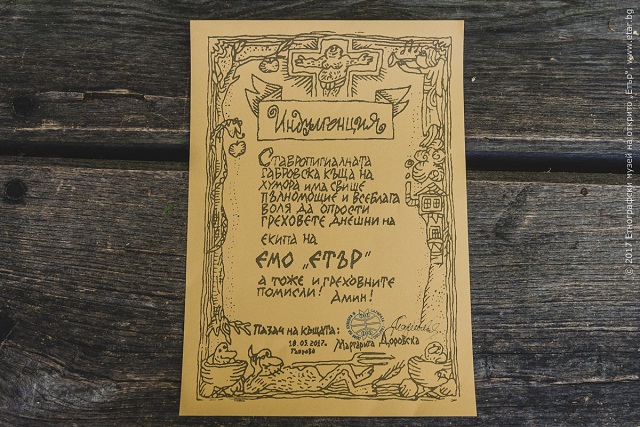 Индулгенция
Ставропигиалната
Габровска къща на
хумора има свише
пълномощие и всеблага
воля да опрости
греховете днешни на
екипа на
ЕМО „ЕТЪР"
а тоже и греховните
помисли! Амин!
Пазач на къщата:
18.05.2017г.
Габрово
Маргарита Доровска
© 2017 Етнографски музей на открито „Етър" www.etar.bg